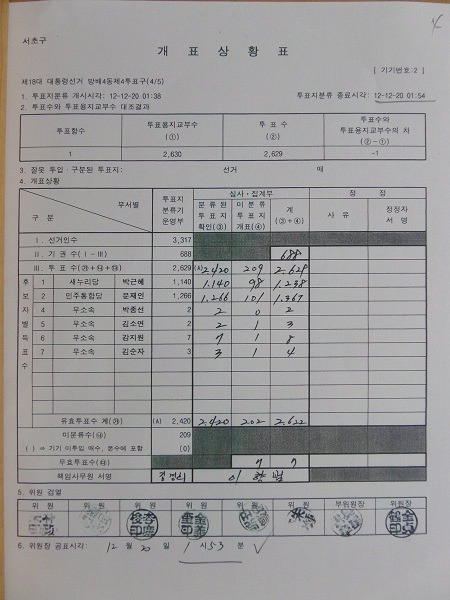 서초구
개 표 상 황 표
[ 기기번호:2 ]
제18대 대통령선거 방배4동제4투표구(4/5)
1. 투표지분류 개시시각: 12-12-20 01:38 투표지분류 종료시각: 12-12-20 01:54
2. 투표수와 투표용지교부수 대조결과
투표함수 투표용지교부수 (①) 투 표 수 (②) 투표수와 투표용지교부수의 차 (②-①)
1 2,630 2,629 -1
3. 잘못 투입·구분된 투표지: 선거 매
4. 개표상황
구 분 부서별 투표지 분류기 운영부 심사·집계부 정 정
분류된 투표지 확인(③) 미분류 투표지 개표(④) 계 (③+④) 사 유 정정자 서 명
Ⅰ. 선거인수 3,317
Ⅱ. 기 권 수(Ⅰ-Ⅲ) 688 688
Ⅲ. 투 표 수 2,629 (A) 2,420 209 2,629
후보자별득표수
1 새누리당 박근혜 1,140 1,140 98 1,238
2 민주통합당 문재인 1,266 1,266 101 1,367
4 무소속 박종선 2 2 0 2
5 무소속 김소연 2 2 1 3
6 무소속 강지원 7 7 1 8
7 무소속 김순자 3 3 1 4
유효투표수 계 (A) 2,420 2,420 202 2,622
미분류수 209
( ) ⇒ 기기 미투입 매수, 본수에 포함 (0)
무효투표수 7 7
책임사무원 서명
5. 위원 검열
위 원 위 원 위 원 위 원 위 원 위 원 부위원장 위원장
6. 위원장 공표시각: 12 월 20 일 1 시 53 분